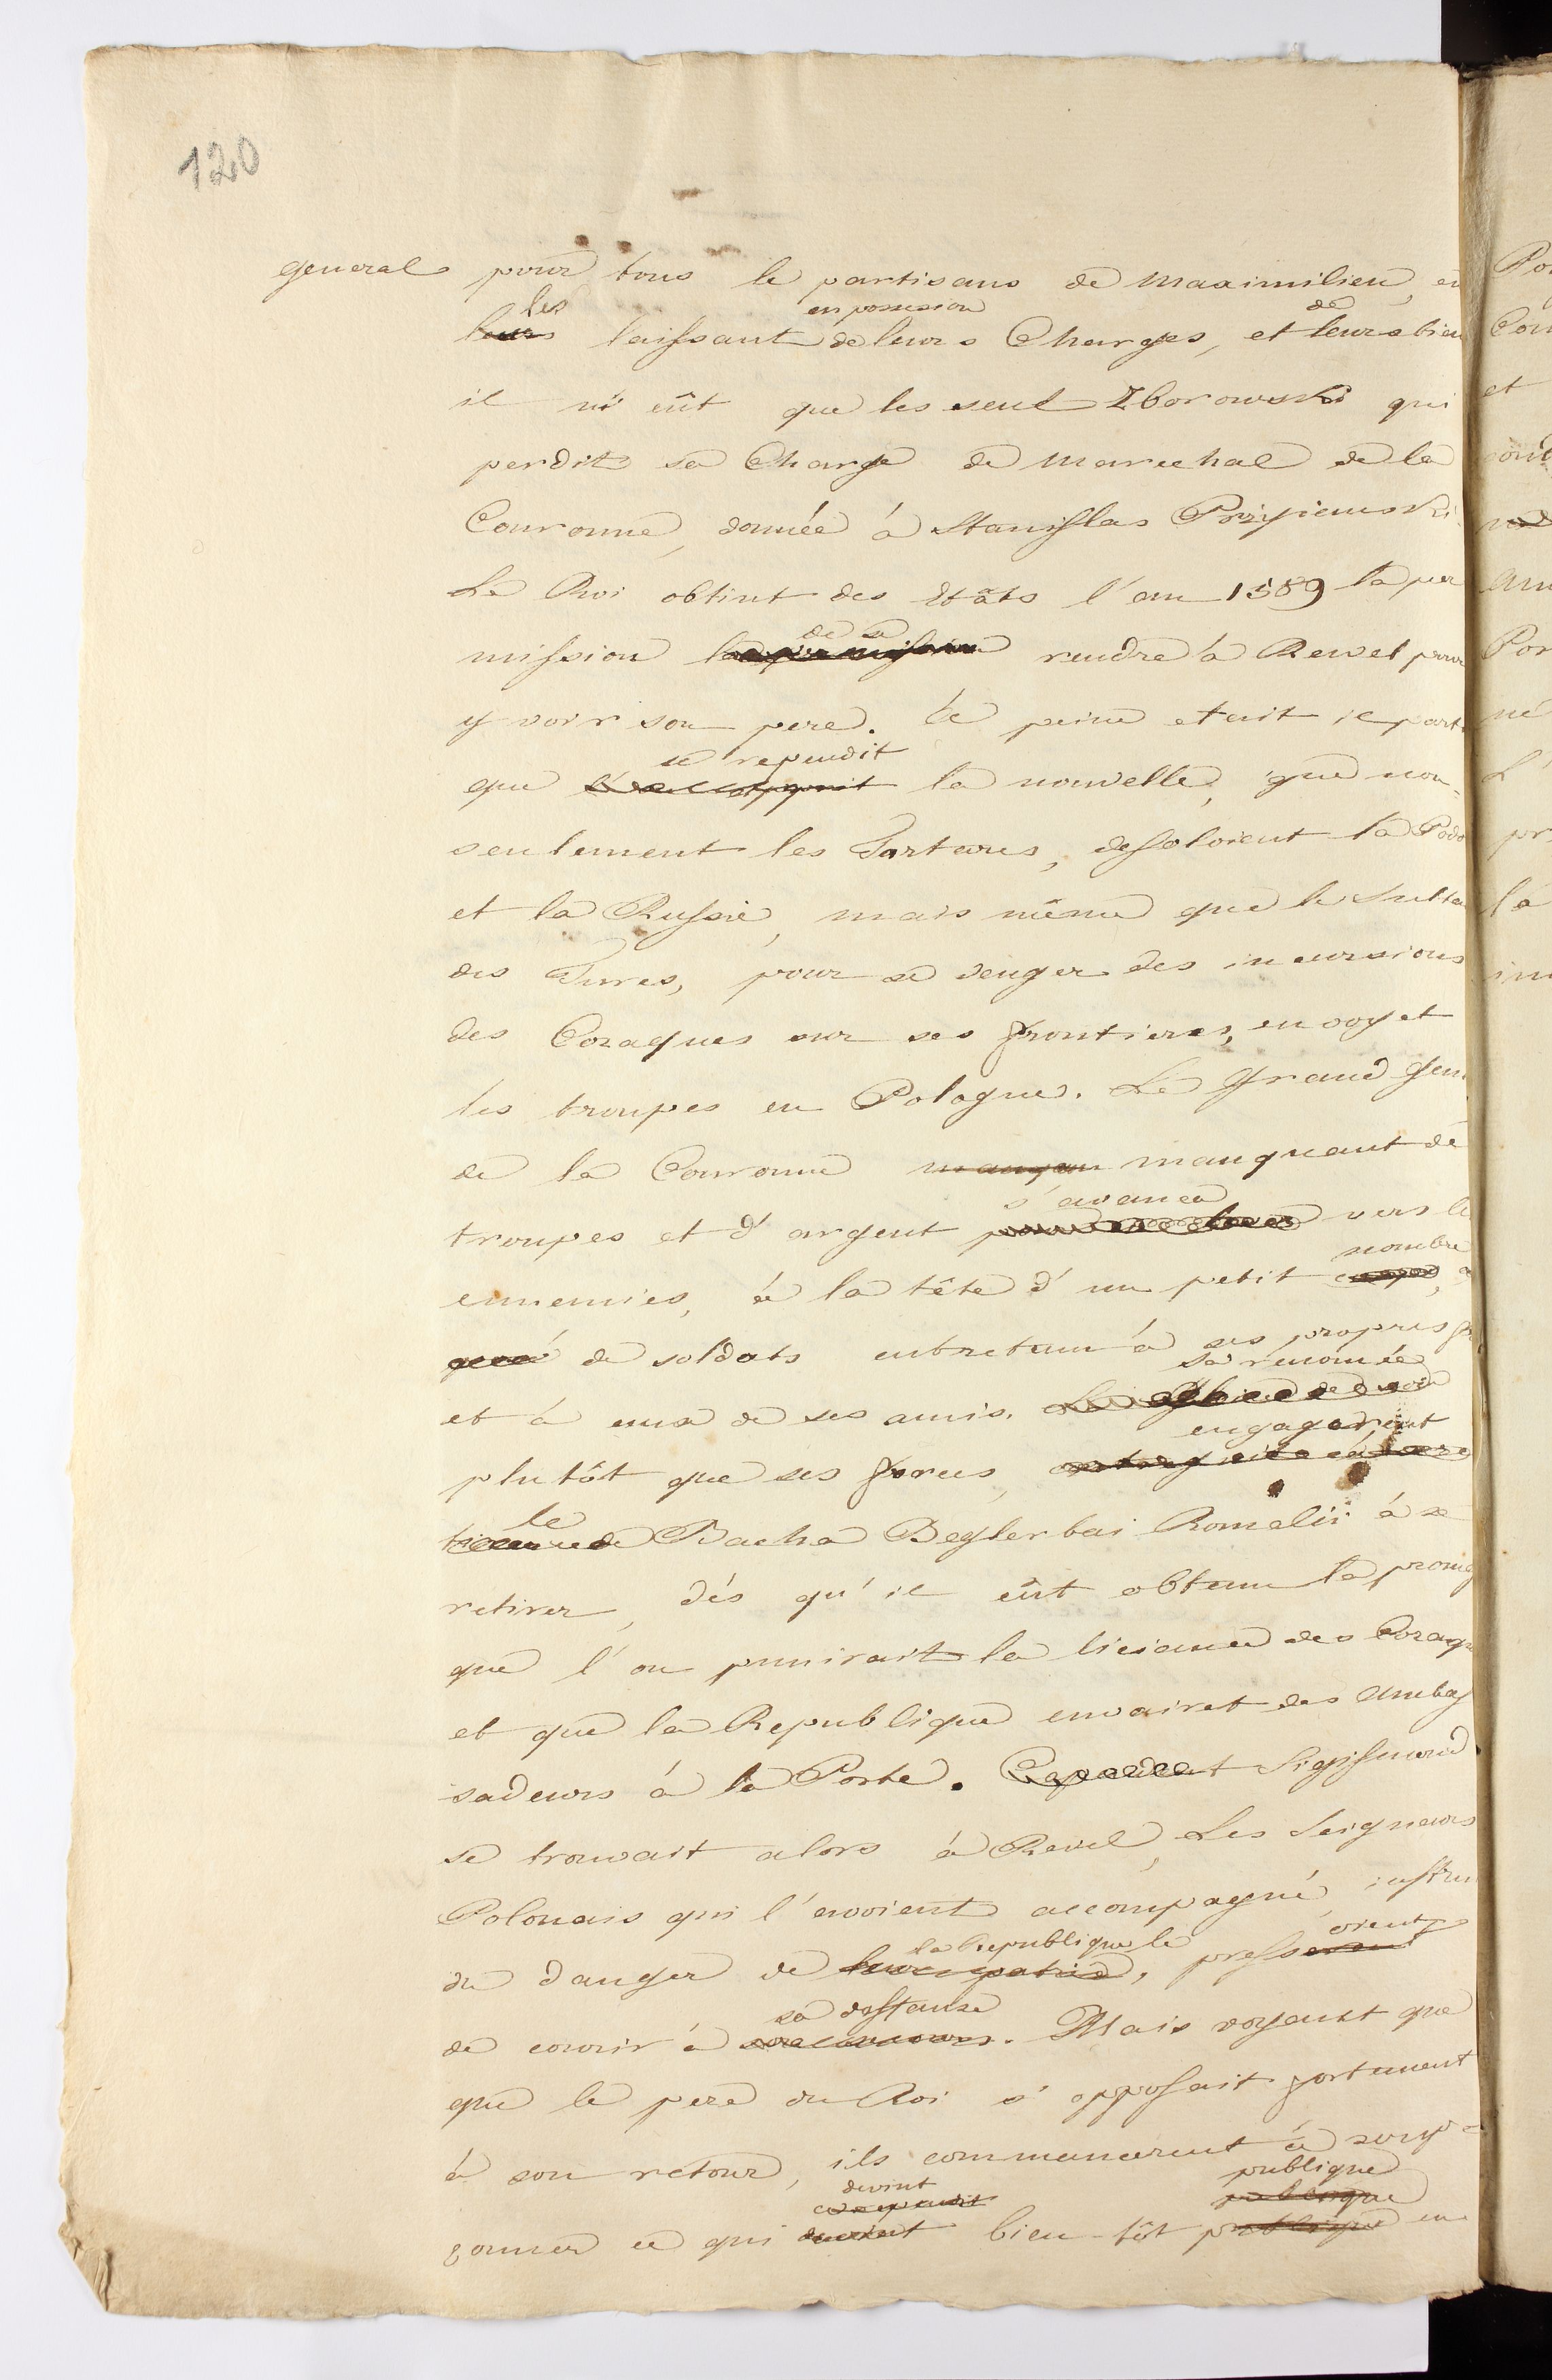 120
general pour tous le partisans de Maximilien, en
les en possession de
leurs laissant de leurs Charges, et leurs bien
il n'y eût que les seul Zborowski qui
perdit sa Charge de Marechal de la
Couronne, donnée à Stanislas Przyiemski.
Le Roi obtint des Etâts l'an 1589 la per
de se
mission la permission rendre à Rewel pour
y voir son pere. à peine etait il parti
se rependit
que la nouvelle, que non-
seulement les Tartares, desoloient la Podo
et la Russie, mais même que le Sulta
des Turcs, pour se venger des incursions
des Cozaques sur ses frontieres, envoyet
les troupes en Pologne. Le Grand Gen
de la Couronne manquan manquant de
s'avança
troupes et d'argent vers le
nombre
ennemies, à la tête d'un petit corps,
de soldats entretenu à ses propres fr
sa renomée
et à ceux de ses amis.
engagerent
plutôt que ses forces,
le
Bacha Beglerbai Romelii à se
retirer, dés qu'il eût obtenu la prome
que l'on punirait la liciance des Cozaqu
et que la Republique envairet des Ambas
sadeurs à la Porte. Cependent Sigismund
se trouvait alors à Revel, Les Seigneurs
Polonais qui l'avoient accompagné, instru
la Republique le oient
du danger de leur patrie, presserent
sa deffense
de courir à son secours. Mais voyant que
que le pere du Roi s'opposait fortement
à son retour, ils commancerent à soup-
devint publique
publique
çonner ce qui devient bien-tôt publique en
Po
Con
et
Am
Por
né
L'
pr
la
im